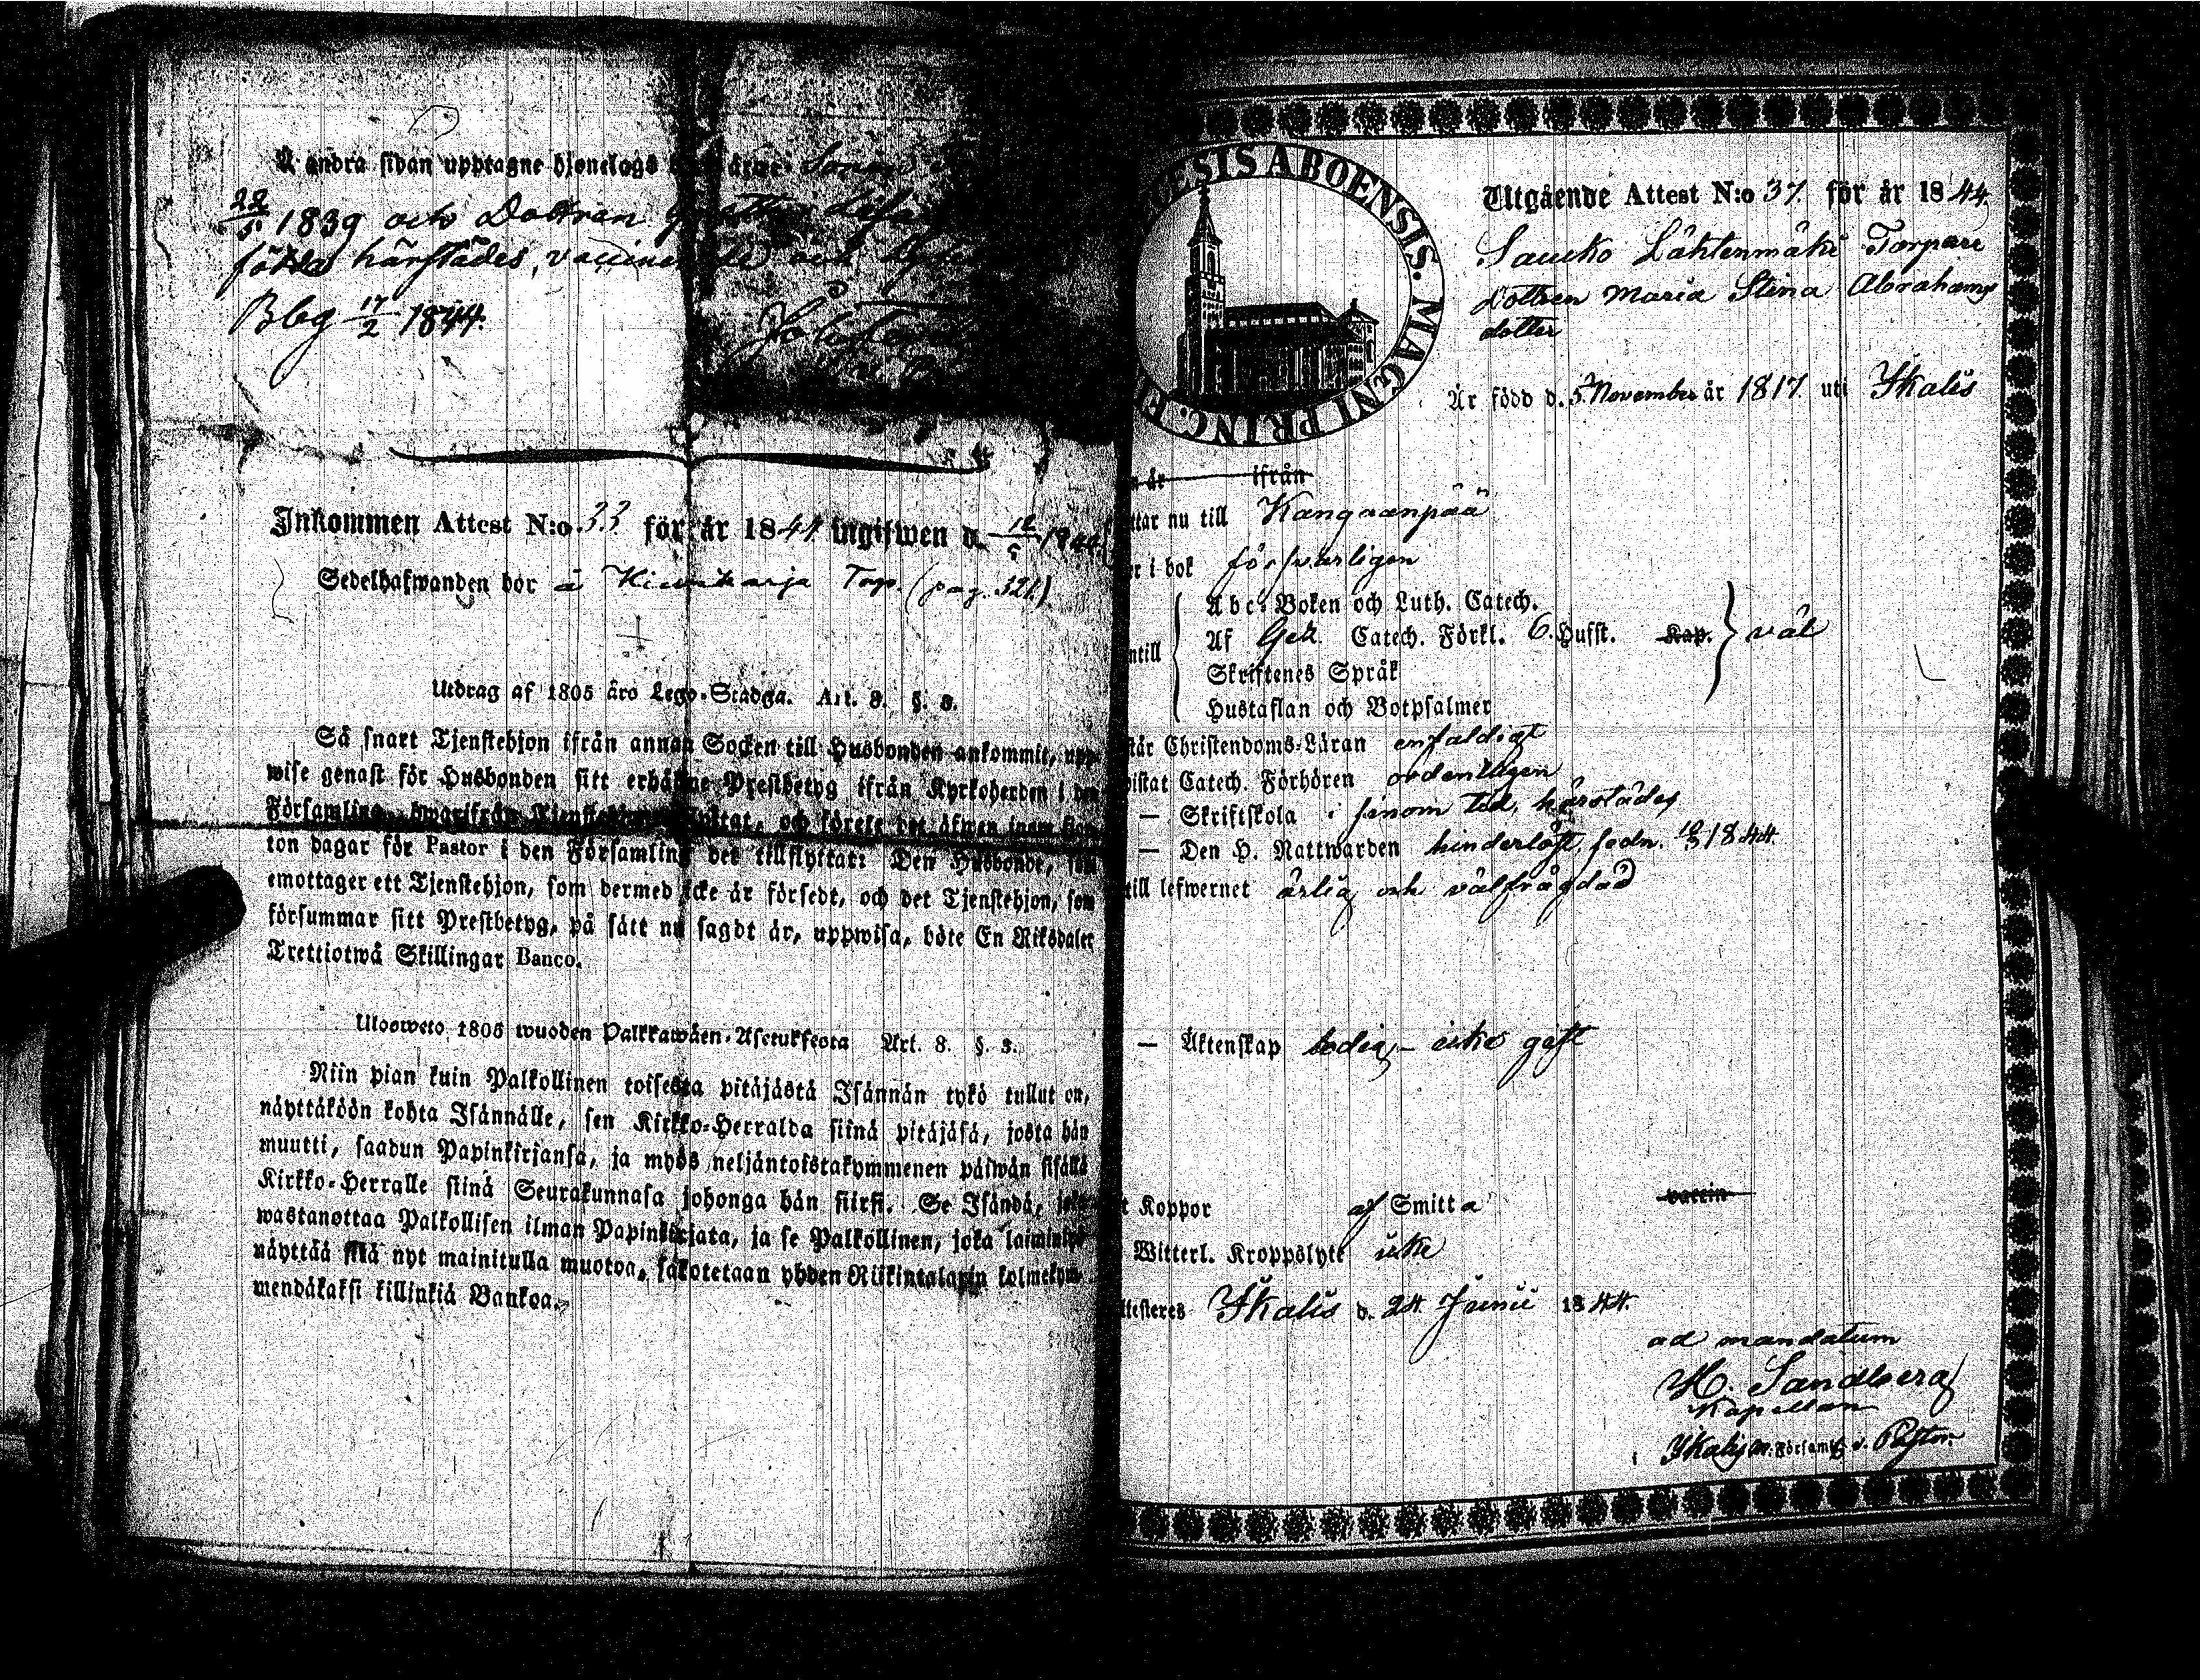 Å andra sidan upptagne hjonelags
22/5 1839 och Dottren
födda härstädes,
Bbg 17/2 1844.
Inkommen Attest N:o 33 för år 1844 ingifwen d.
Sedelhafwanden bor å Torp. (pag. 321.)
Utdrag af 1805 års Lego-Stadga. Art. 8. §. 3.
Så snart Tjenstehjon ifrån annan Socken till Husbonden ankommit, upp-
wise genast för Husbonden sitt erhållne Prestbetyg ifrån Kyrkoherden i den
Församling, hwarifrån Tjenstehjonet flyttat, och förete det äfwen inom fjor-
ton dagar för Pastor i den Församling det tillflyttat: Den Husbonde, som
emottager ett Tjenstehjon, som dermed icke är försedt, och det Tjenstehjon, som
försummar sitt Prestbetyg, på sätt nu sagdt är, uppwisa, böte En Riksdaler
Trettiotwå Skillingar Banco.
Ulosweto 1805 wuoden Palkkawäen-Asetuksesta Art. 8. §. 3.
Niin pian kuin Palkollinen toisesta pitäjästä Isännän tykö tullut on,
näyttäköön kohta Isännälle, sen Kirkko-Herralda siinä pitäjäsä, josta hän
muutti, saadun Papinkirjansa, ja myös neljäntoistakymmenen päiwän sisällä
Kirkko-Herralle siinä Seurakunnasa johonga hän siirsi. Se Isändä, joka
wastanottaa Palkollisen ilman Papinkirjata, ja se Palkollinen, joka laiminlyö
näyttää sitä nyt mainitulla muotoa, sakotetaan yhden Riikintalarin kolmekym-
mendäkaksi killinkiä Bankoa.
ESIS ABOENSIS. MAGNI PRINC. F
Utgående Attest N:o 37. för år 1844.
Saucko Lähtenmäki Torpare
dottren Maria Stina Abrahams
dotter
Är född d. 5 November år 1817 uti Ikalis
n år ifrån
ttar nu till Kangaanpää
er i bok försvarligen
ntill
Abc-Boken och Luth. Catech.
Af Gez. Catech. Förkl. 6. Hufst. Kap. väl
Skriftenes Språk
Hustaflan och Botpsalmer
står Christendoms-Läran enfaldigt
wistat Catech. Förhören ordentligen
— Skriftskola i sinom tid, härstädes
— Den H. Nattwarden hinderlöst, sedn. 1844
till lefwernet ärlig och välfrägdad
— Äktenskap ledig – icke gift
t Koppor af Smitta vaccin
Witterl. Kroppslyte icke
ttesteres Ikalis d. 24 Junii 1844.
ad mandatum
H. Sandberg
Kapellan
Ikalis Församl. v. Pastor.